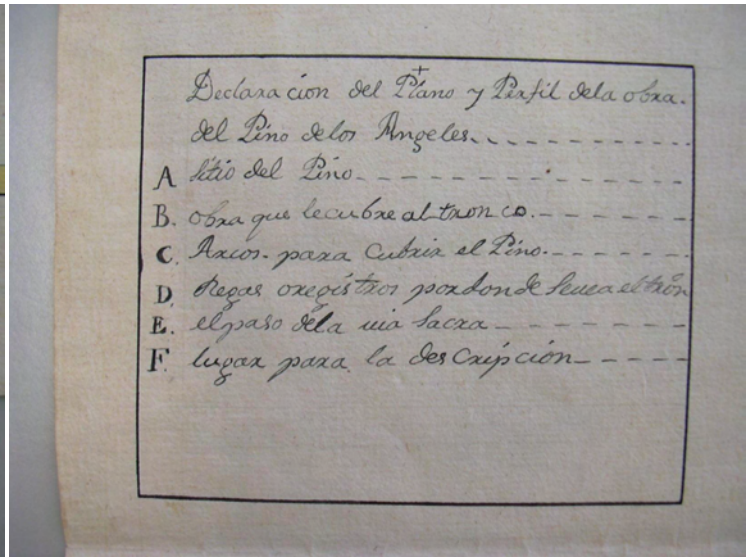 Declaracion del Plano y Perfil dela obra.
del Pino delos Angeles
A Sitio del Pino
B. obra que lecubre al tronco.
C. Arcos para Cubrir el Pino.
D. Regas oregistros pordonde seuea el tron
E. elpaso dela uia Sacra
F. lugar para la descripción